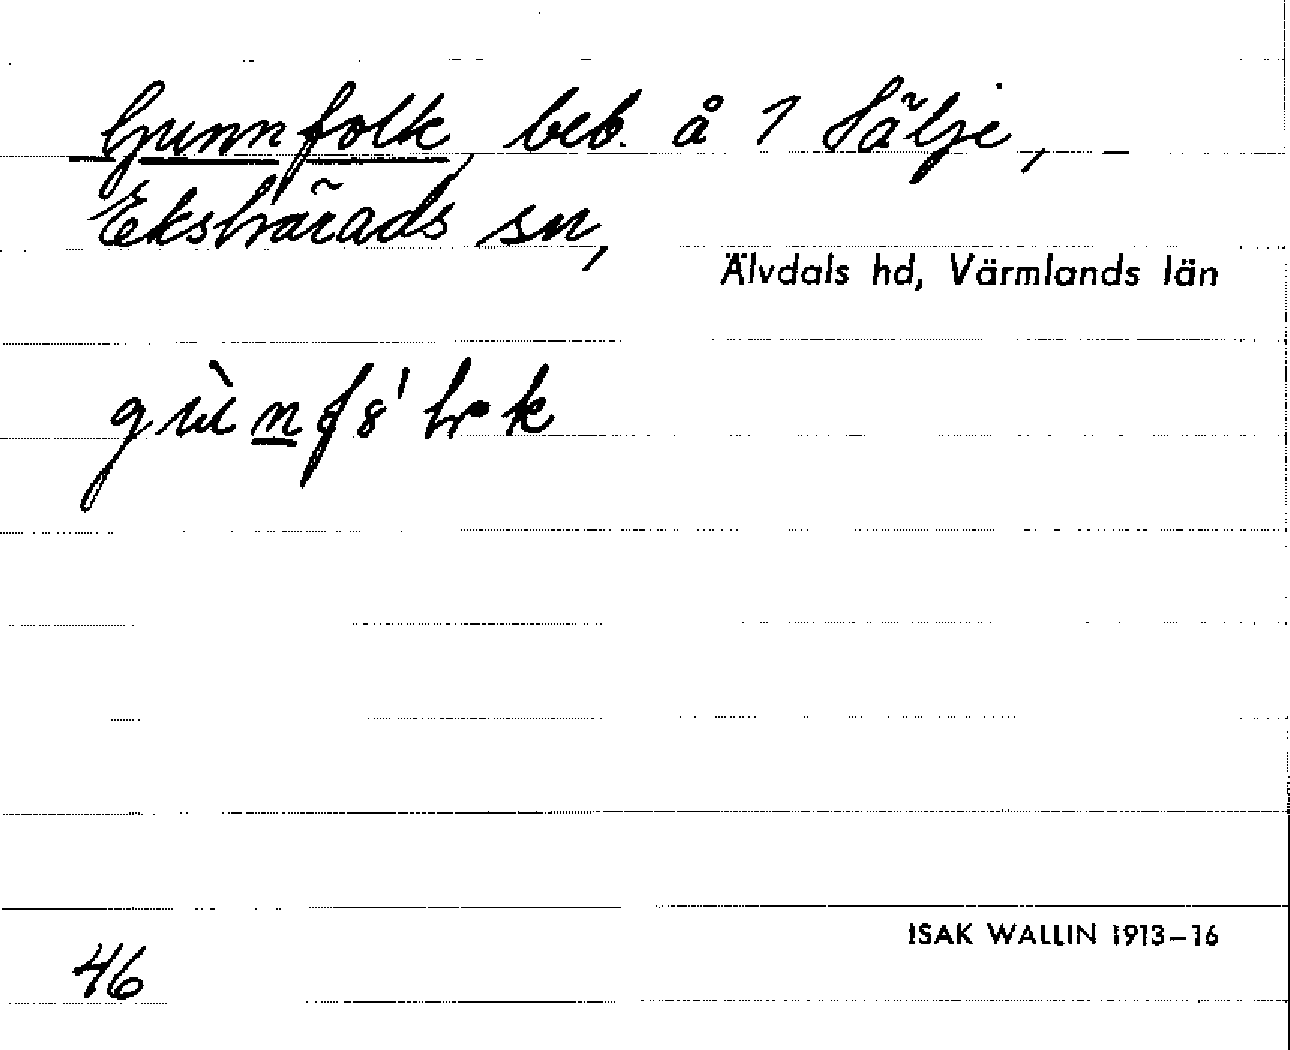 Gunnfolk, beb. å 1 Sälje,
Ekshärads sn,
Älvdals hd, Värmlands län
ISAK WALLIN 1913–16
46